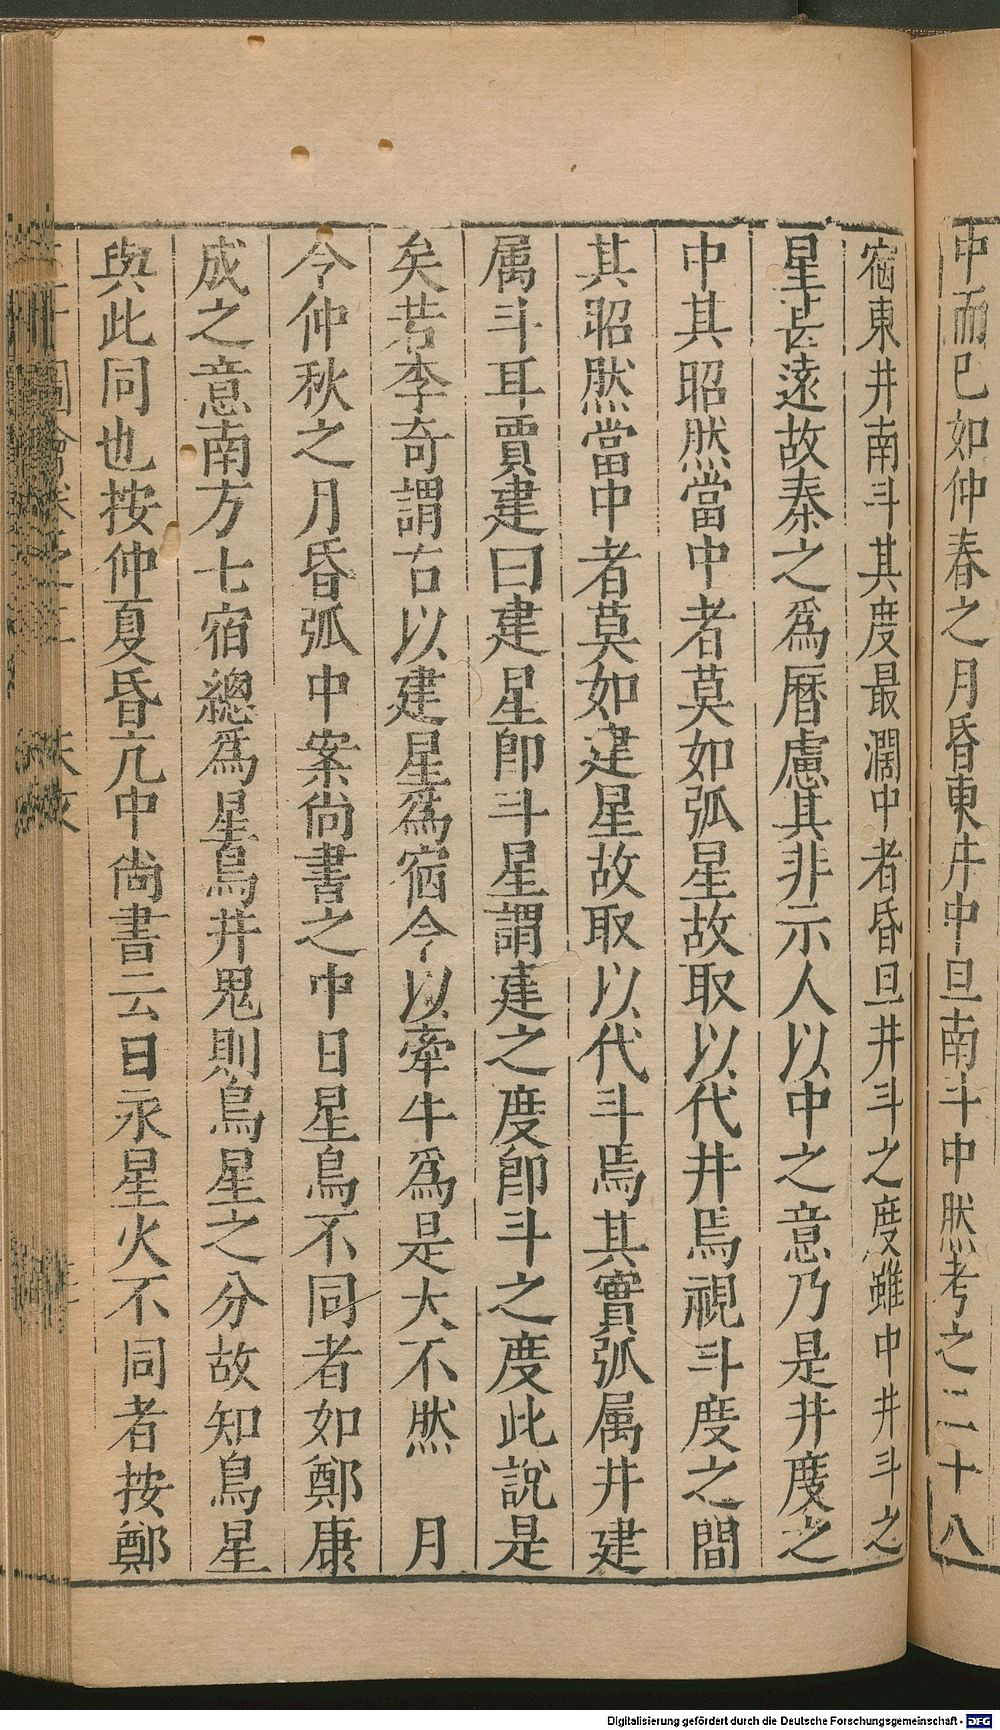 中而已如仲春之月昏東井中旦南斗中然考之二十八
宿東井南斗其度最濶中者昏旦井斗之度雖中井斗之
星甚遠故秦之爲曆慮其非示人以中之意乃是井度之
中其昭然當中者莫如弧星故取以代井焉視斗度之間
其昭然當中者莫如建星故取以代斗焉其實弧属井建
属斗耳賈建曰建星卽斗星謂建之度卽斗之度此說是
矣若李奇謂古以建星爲宿今以牽牛爲是大不然 月
令仲秋之月昏弧中案尙書之中日星鳥不同者如鄭康
成之意南方七宿總爲星鳥井鬼則鳥星之分故知鳥星
與此同也按仲夏昏亢中尙書云日永星火不同者按鄭
Digitalisierung gefördert durch die Deutsche Forschungsgemeinschaft - DFG